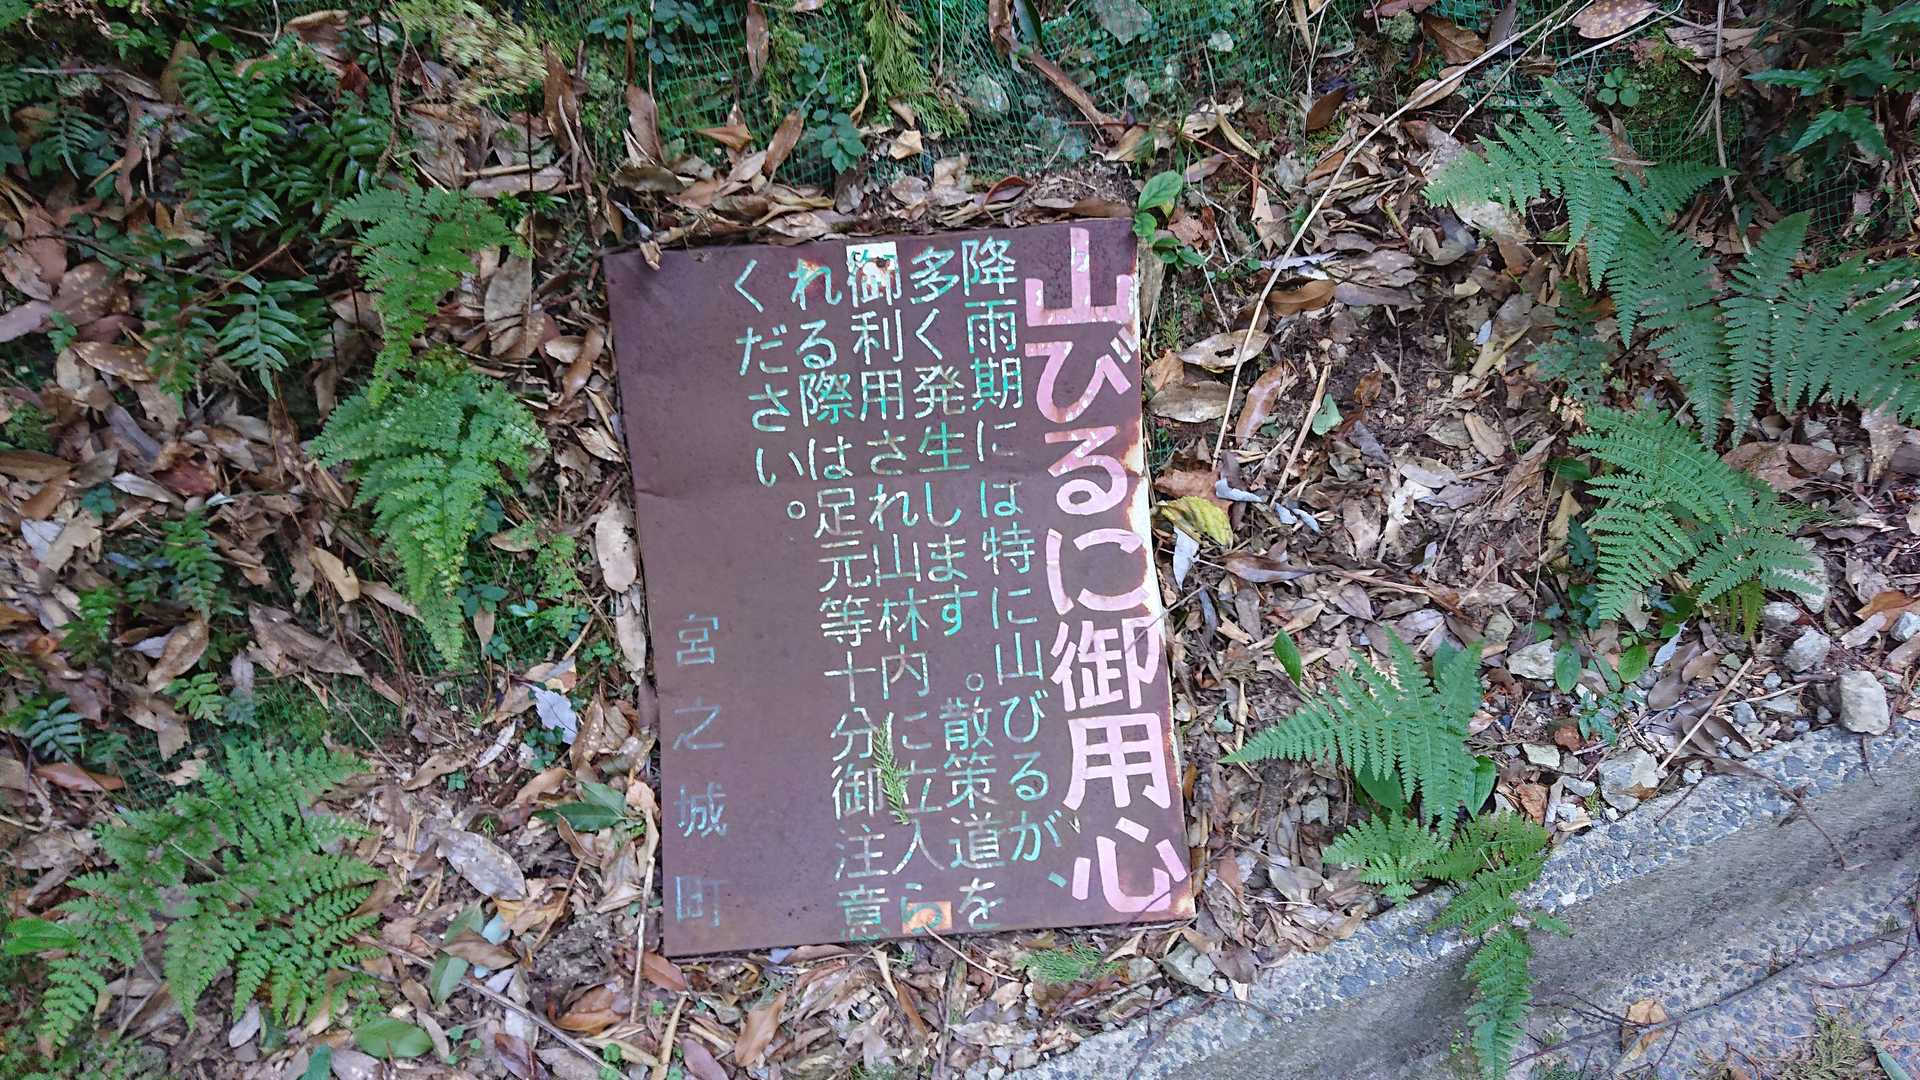 山びるに御用心
降雨期には特に山びるが、
多く発生します。散策道を
御利用され山林内に立入ら
れる際は足元等十分御注意
ください。
宮之城町